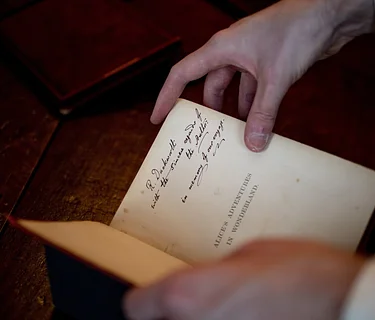 R. Duckworth
with the sincere regards of
the Author
in memory of our voyage.
ALICE'S ADVENTURES
IN WONDERLAND.